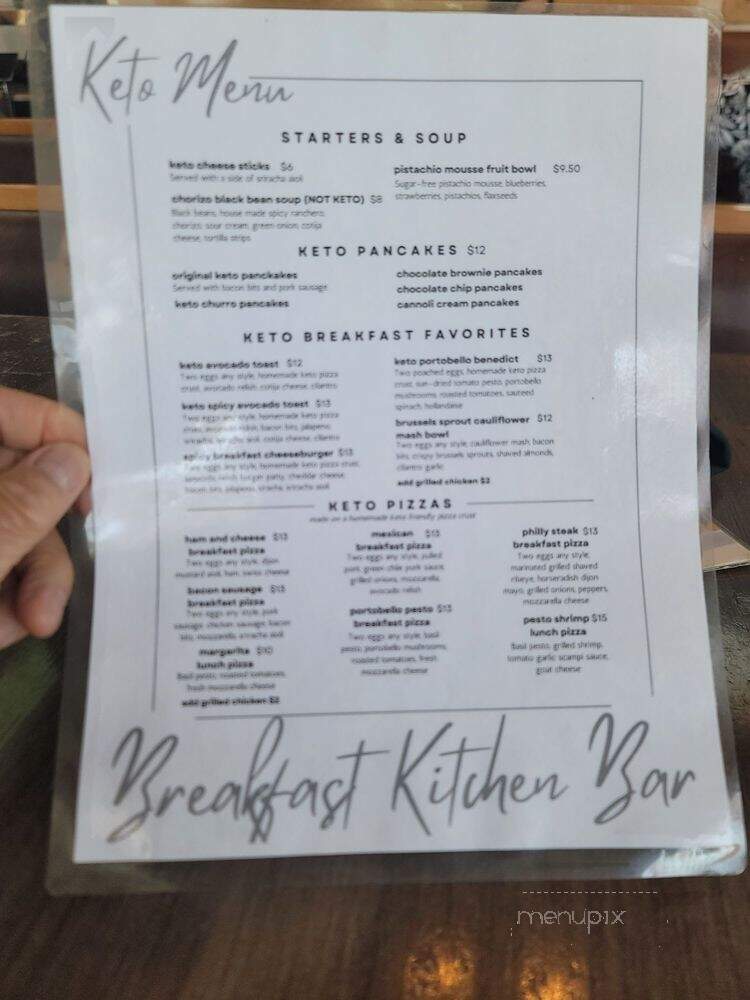 Keto Menu
STARTERS & SOUP
keto cheese sticks $6
Served with a side of sriracha aioli
chorizo black bean soup (NOT KETO) $8
Black beans, house made spicy ranchero,
chorizo, sour cream, green onion, cotija
cheese, tortilla strips
pistachio mousse fruit bowl $9.50
Sugar-free pistachio mousse, blueberries,
strawberries, pistachios, flaxseeds
KETO PANCAKES $12
original keto panckakes
Served with bacon bits and pork sausage
keto churro pancakes
chocolate brownie pancakes
chocolate chip pancakes
cannoli cream pancakes
KETO BREAKFAST FAVORITES
keto avocado toast $12
Two eggs any style, homemade keto pizza
crust, avocado relish, cotija cheese, cilantro
keto spicy avocado toast $13
Two eggs any style, homemade keto pizza
crust, avocado relish, bacon bits, jalapeno,
sriracha, sriracha aioli, cotija cheese, cilantro
spicy breakfast cheeseburger $13
Two eggs any style, homemade keto pizza crust,
avocado relish, burger patty, cheddar cheese,
bacon bits, jalapeno, sriracha, sriracha aioli
keto portobello benedict $13
Two poached eggs, homemade keto pizza
crust, sun-dried tomato pesto, portobello
mushrooms, roasted tomatoes, sauteed
spinach, hollandaise
brussels sprout cauliflower $12
mash bowl
Two eggs any style, cauliflower mash, bacon
bits, crispy brussels sprouts, shaved almonds,
cilantro garlic
add grilled chicken $2
KETO PIZZAS
made on a homemade keto friendly pizza crust
ham and cheese $13
breakfast pizza
Two eggs any style, dijon
mustard aioli, ham, swiss cheese
bacon sausage $13
breakfast pizza
Two eggs any style, pork
sausage, chicken sausage, bacon
bits, mozzarella, sriracha aioli
margarita $10
lunch pizza
Basil pesto, roasted tomatoes,
fresh mozzarella cheese
add grilled chicken $2
mexican $13
breakfast pizza
Two eggs any style, pulled
pork, green chile pork sauce,
grilled onions, mozzarella,
avocado relish
portobello pesto $13
breakfast pizza
Two eggs any style, basil
pesto, portobello mushrooms,
roasted tomatoes, fresh
mozzarella cheese
philly steak $13
breakfast pizza
Two eggs any style,
marinated grilled shaved
ribeye, horseradish dijon
mayo, grilled onions, peppers,
mozzarella cheese
pesto shrimp $15
lunch pizza
Basil pesto, grilled shrimp,
tomato garlic scampi sauce,
goat cheese
Breakfast Kitchen Bar
menupix